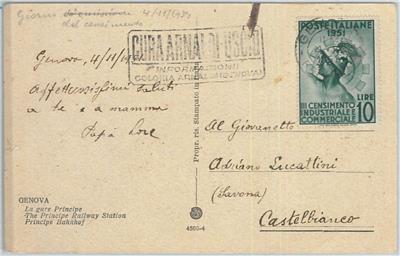 Giorno 4/11/1951
del censimento
CURA ARNALDI USCIO
INFORMAZIONI
COLONIA ARNALDI (GENOVA)
POSTE ITALIANE
1951
III CENSIMENTO
INDUSTRIALE E
COMMERCIALE
LIRE
10
Genova, 4/11/
Affettuosissimi saluti
a te e a mamma
Papà
Al Giovanetto
Adriano Lucattini
(Savona)
Castelbianco
GENOVA
La gare Principe
The Principe Railway Station
Principe Bahnhof
4560-4
Propr. ris. Stampato in